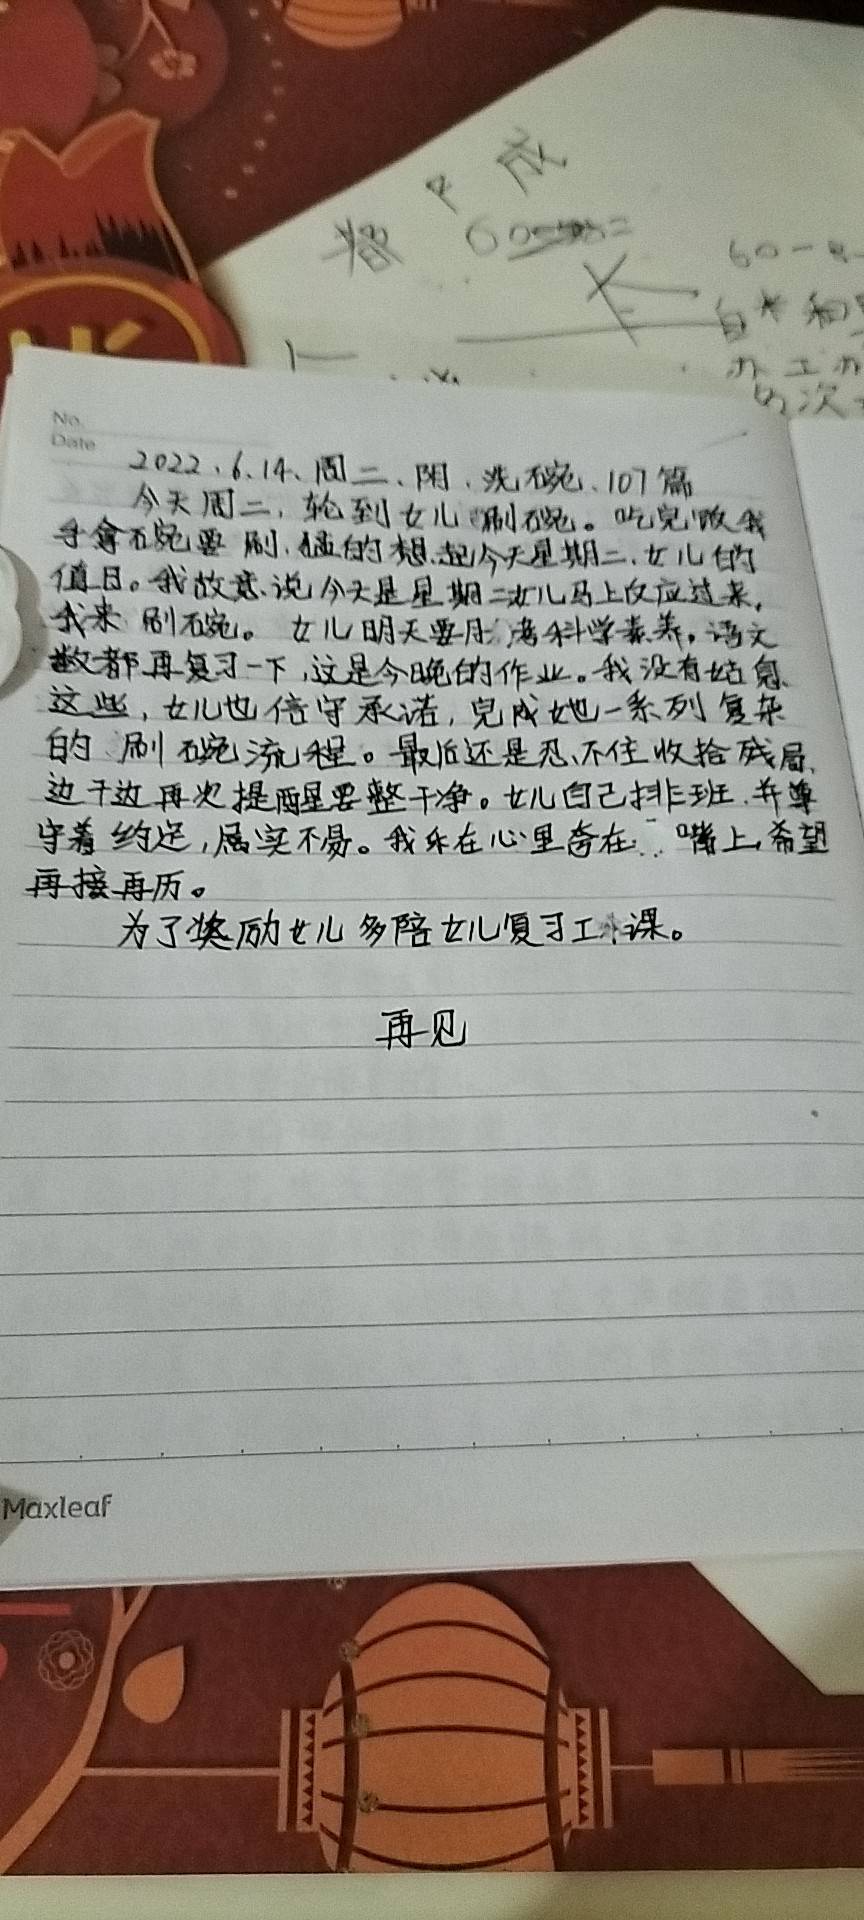 将 P 成
60
60-8-
白米和
办工办
每次
No.
Date
2022、6.14、周二、阴、洗碗、107篇
今天周二，轮到女儿刷碗。吃完饭我
手拿碗要刷，猛的想起今天星期二、女儿的
值日。我故意说今天是星期二女儿马上反应过来，
我来刷碗。女儿明天要月考科学素养，语文
数都再复习一下，这是今晚的作业。我没有姑息
这些，女儿也信守承诺，完成她一系列复杂
的刷碗流程。最后还是忍不住收拾残局，
边干边再次提醒要整干净。女儿自己排班，并尊
守着约定，属实不易。我乐在心里夸在 嘴上，希望
再接再历。
为了奖励女儿多陪女儿复习工课。
再见
Maxleaf